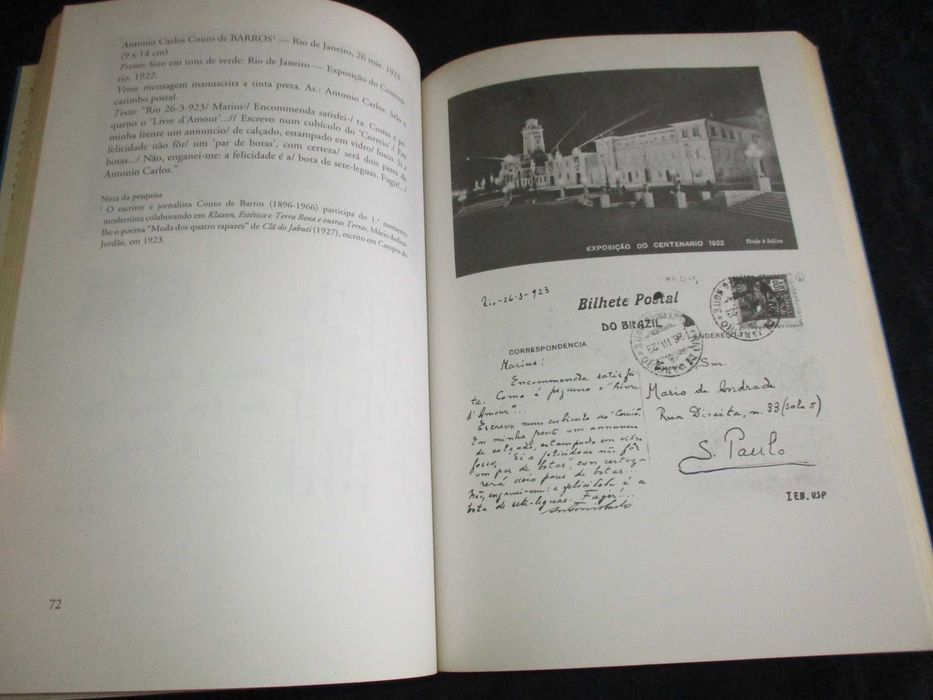 Antonio Carlos Couto de BARROS¹ — Rio de Janeiro, 26 mar. 1923
(9 x 14 cm)
Frente: foto em tons de verde: Rio de Janeiro — Exposição do Centená-
rio, 1922.
Verso: mensagem manuscrita a tinta preta. As.: Antonio Carlos. Selo e
carimbo postal.
Texto: "Rio 26-3-923/ Marius:/ Encommenda satisfei-/ ta. Como é pe-
queno o 'Livre d'Amour'...// Escrevo num cubículo do 'Correio'./ Em
minha frente um annuncio/ de calçado, estampado em vidro/ fosco. Si a
felicidade não fôr/ um 'par de botas', com certeza/ será dois pares de
botas.../ Não, enganei-me: a felicidade é a/ bota de sete-leguas. Fugir!.../
Antonio Carlos."
Nota da pesquisa
¹ O escritor e jornalista Couto de Barros (1896-1966) participa do 1.º momento
modernista colaborando em Klaxon, Estética e Terra Roxa e outras Terras. Mário dedica-
lhe o poema "Moda dos quatro rapazes" de Clã do Jabuti (1927), escrito em Campos do
Jordão, em 1923.
72
EXPOSIÇÃO DO CENTENARIO 1922
Rio-26-3-923
Bilhete Postal
DO BRAZIL
CORRESPONDENCIA
ENDEREÇO
Marius:
Encommenda satisfei-
ta. Como é pequeno o "Livre
d'Amour"...
Escrevo num cubiculo do "Correio".
Em minha frente um annuncio
de calçado, estampado em vidro
fosco. Si a felicidade não fôr
um par de botas, com certeza
será dois pares de botas...
Não, enganei-me: a felicidade é a
bota de sete-leguas. Fugir!...
Snr.
Mario de Andrade
Rua Direita, n. 33 (sala 5)
S. Paulo
IEB.USP